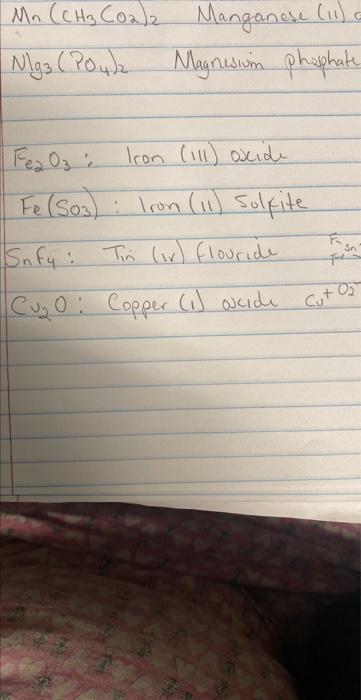 Mn (CH3 CO2)2 Manganese (II)
Mg3 (PO4)2 Magnesium phosphate
Fe2O3 : Iron (III) oxide
Fe (SO3) : Iron (II) Solfite
SnF4 : Tin (IV) flouride
Cu2O : Copper (I) oxide Cu+ O2-